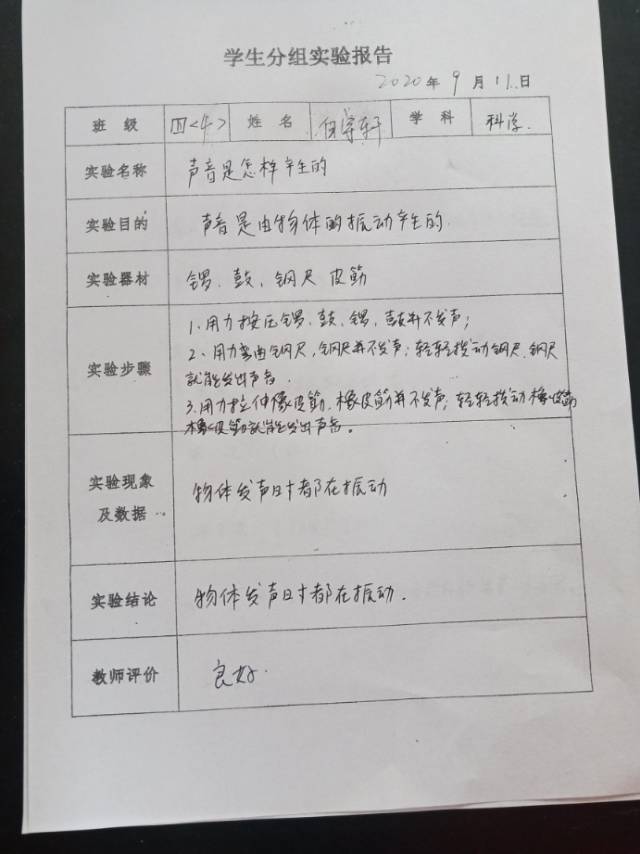 学生分组实验报告
2020年9月11日
班级 四<4> 姓名 轩 学科 科学.
实验名称 声音是怎样产生的
实验目的 声音是由物体的振动产生的.
实验器材 锣、鼓、钢尺 皮筋
1、用力按压锣、鼓、锣、鼓并不发声;
2、用力弯曲钢尺,钢尺并不发声;轻轻拨动钢尺、钢尺
实验步骤 就能发出声音.
3、用力拉伸像皮筋、橡皮筋并不发声,轻轻拨动橡皮筋
橡皮筋就能发出声音。
实验现象
及数据 物体发声时都在振动
实验结论 物体发声时都在振动.
教师评价 良好.